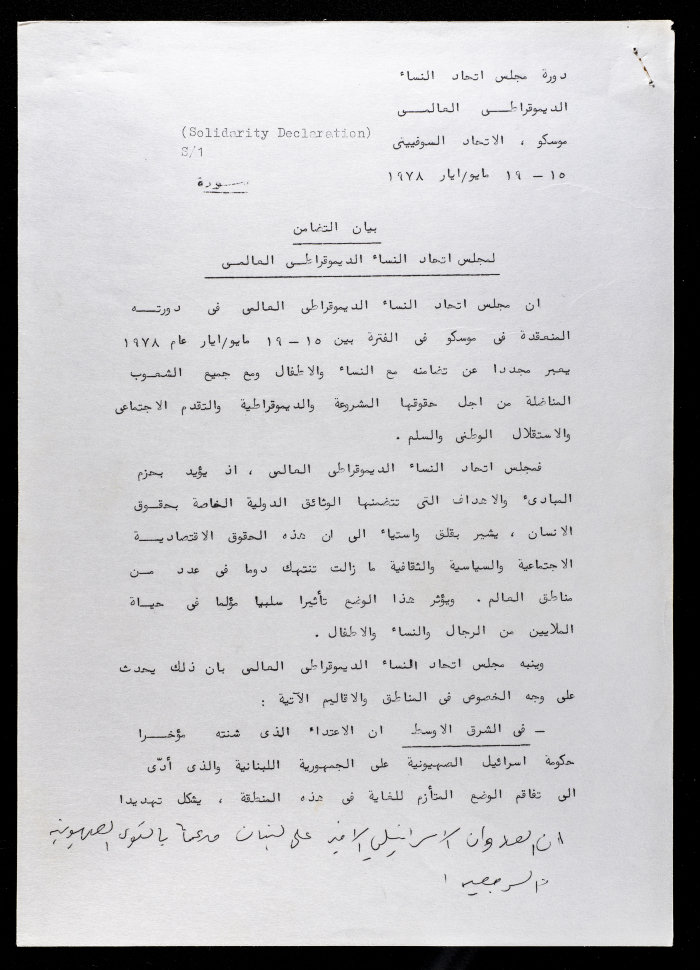 دورة مجلس اتحاد النساء
الديموقراطي العالمي
موسكو ، الاتحاد السوفييتي
١٥ – ١٩ مايو/ايار ١٩٧٨
(Solidarity Declaration)
S/1
مسودة
بيان التضامن
لمجلس اتحاد النساء الديموقراطي العالمي
ان مجلس اتحاد النساء الديموقراطي العالمي في دورتـــه
المنعقدة في موسكو في الفترة بين ١٥ – ١٩ مايو/ايار عام ١٩٧٨
يعبر مجددا عن تضامنه مع النساء والاطفال ومع جميع الشعوب
المناضلة من اجل حقوقها المشروعة والديموقراطية والتقدم الاجتماعى
والاستقلال الوطنى والسلم .
فمجلس اتحاد النساء الديموقراطى العالمى ، اذ يؤيد بحزم
المبادئ والاهداف التى تتضمنها الوثائق الدولية الخاصة بحقـــوق
الانسان ، يشير بقلق واستياء الى ان هذه الحقوق الاقتصاديـــة
الاجتماعية والسياسية والثقافية ما زالت تنتهك دوما فى عدد مــن
مناطق العالم . ويؤثر هذا الوضع تأثيرا سلبيا مؤلما فى حيــاة
الملايين من الرجال والنساء والاطفال .
وينبه مجلس اتحاد النساء الديموقراطى العالمى بان ذلك يحدث
على وجه الخصوص فى المناطق والاقاليم الآتية :
– فى الشرق الاوسط ان الاعتداء الذى شنته مؤخـــرا
حكومة اسرائيل الصهيونية على الجمهورية اللبنانية والذى أدّى
الى تفاقم الوضع المتأزم للغاية فى هذه المنطقة ، يشكل تهديدا
ان العدوان الاسرائيلي الاخير على لبنان مدعما بالقوى الصهيونية
الرجعية